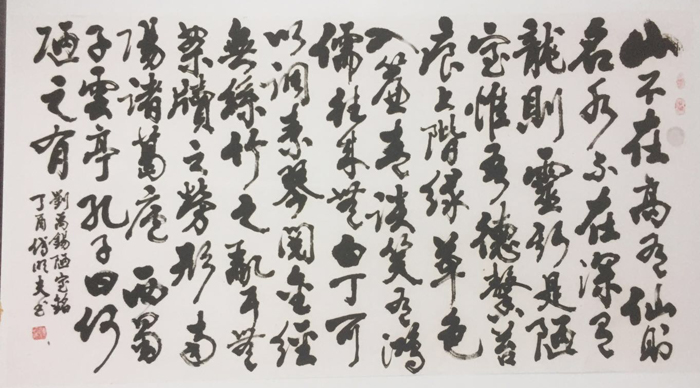 山不在高有仙則
名水不在深有
龍則靈斯是陋
室惟吾德馨苔
痕上階緑草色
入簾青談笑有鴻
儒往來無白丁可
以調素琴閱金經
無絲竹之亂耳無
案牘之勞形南
陽諸葛廬西蜀
子雲亭孔子曰何
陋之有
劉禹錫陋室銘
丁酉